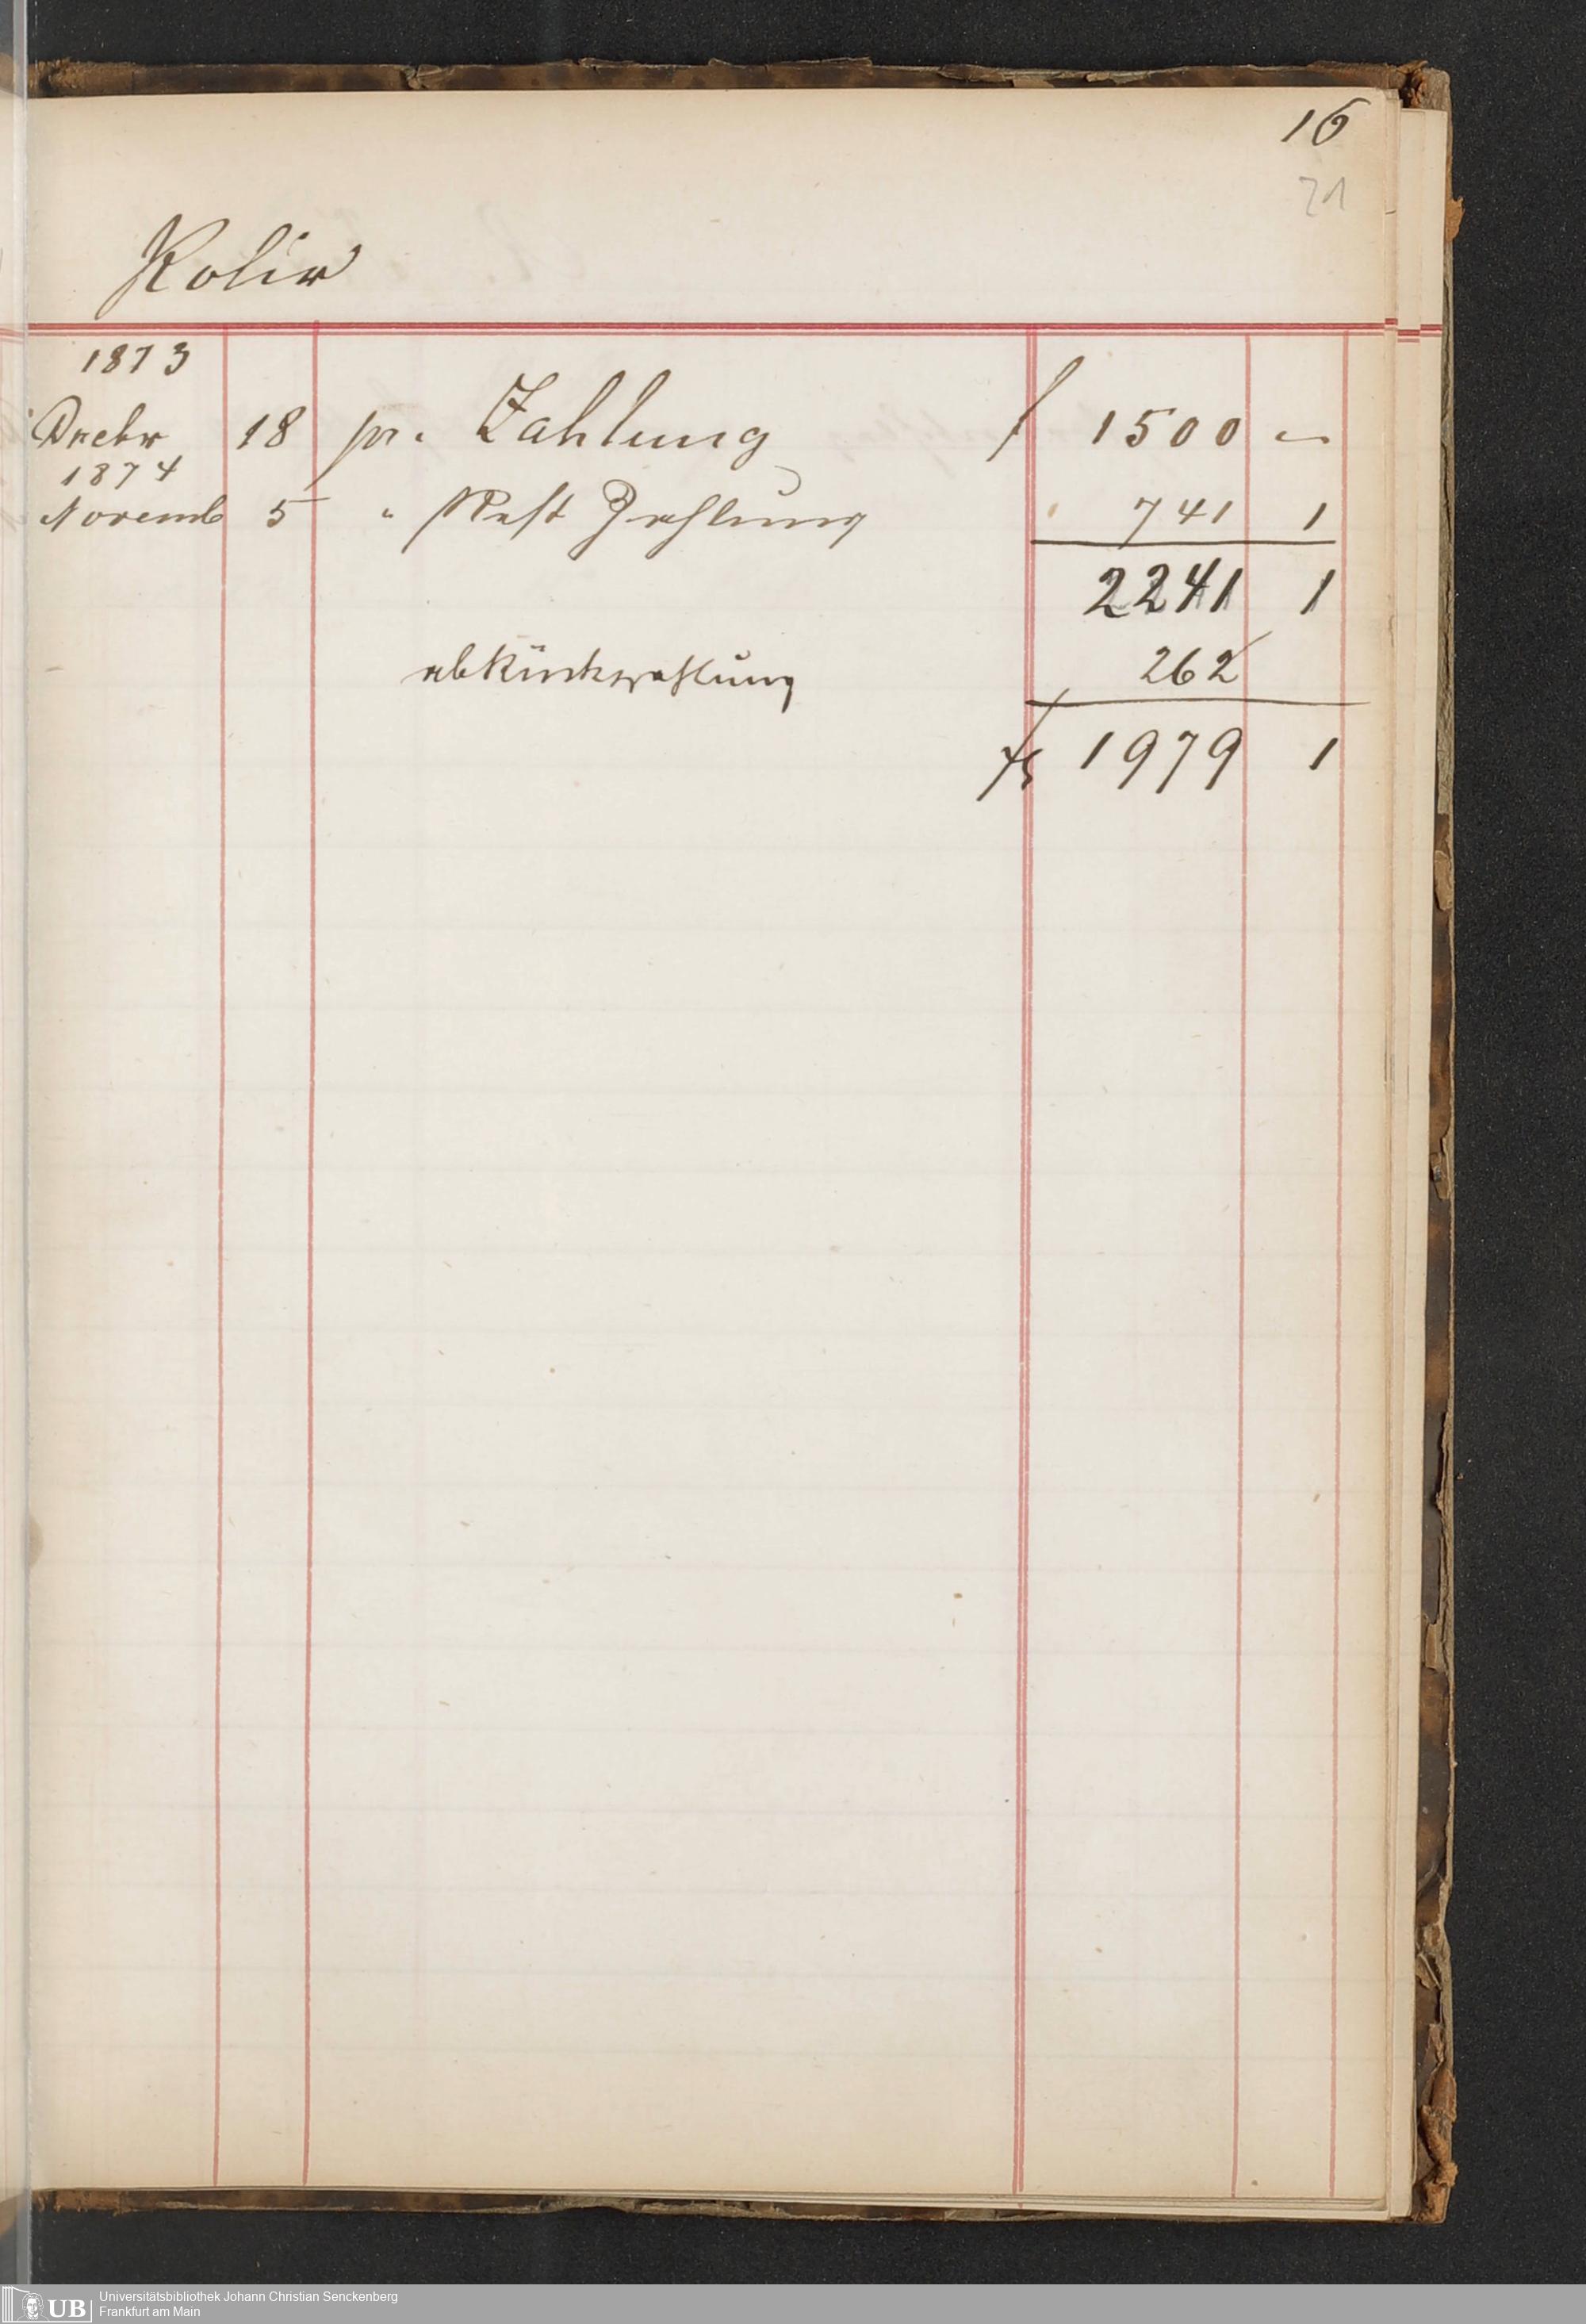 16
21
Kolir
1873
Decbr 18 pr. Zahlung f 1500 –
1874
Novemb 5 " Rest Zahlung 741 1
2241 1
ab Rückzahlung 262
fs 1979 1
UB Universitätsbibliothek Johann Christian Senckenberg
Frankfurt am Main